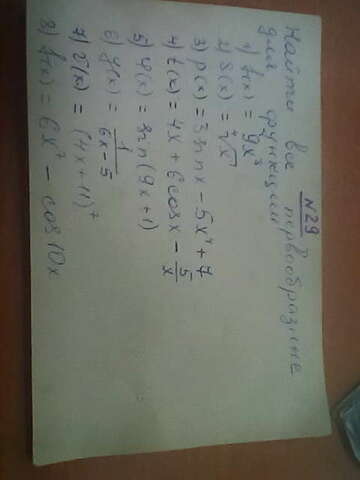 N29
Найти все первообразные
для функции
1) f(x) = 9x⁸
2) S(x) = ⁴√x
3) p(x) = 3sinx - 5x⁴ + 7
4) t(x) = 4x + 6cosx - 5/x
5) φ(x) = sin(9x + 1)
6) y(x) = 1/(6x - 5)
7) (x) = (4x + 11)⁷
8) f(x) = 6x⁷ - cos10x